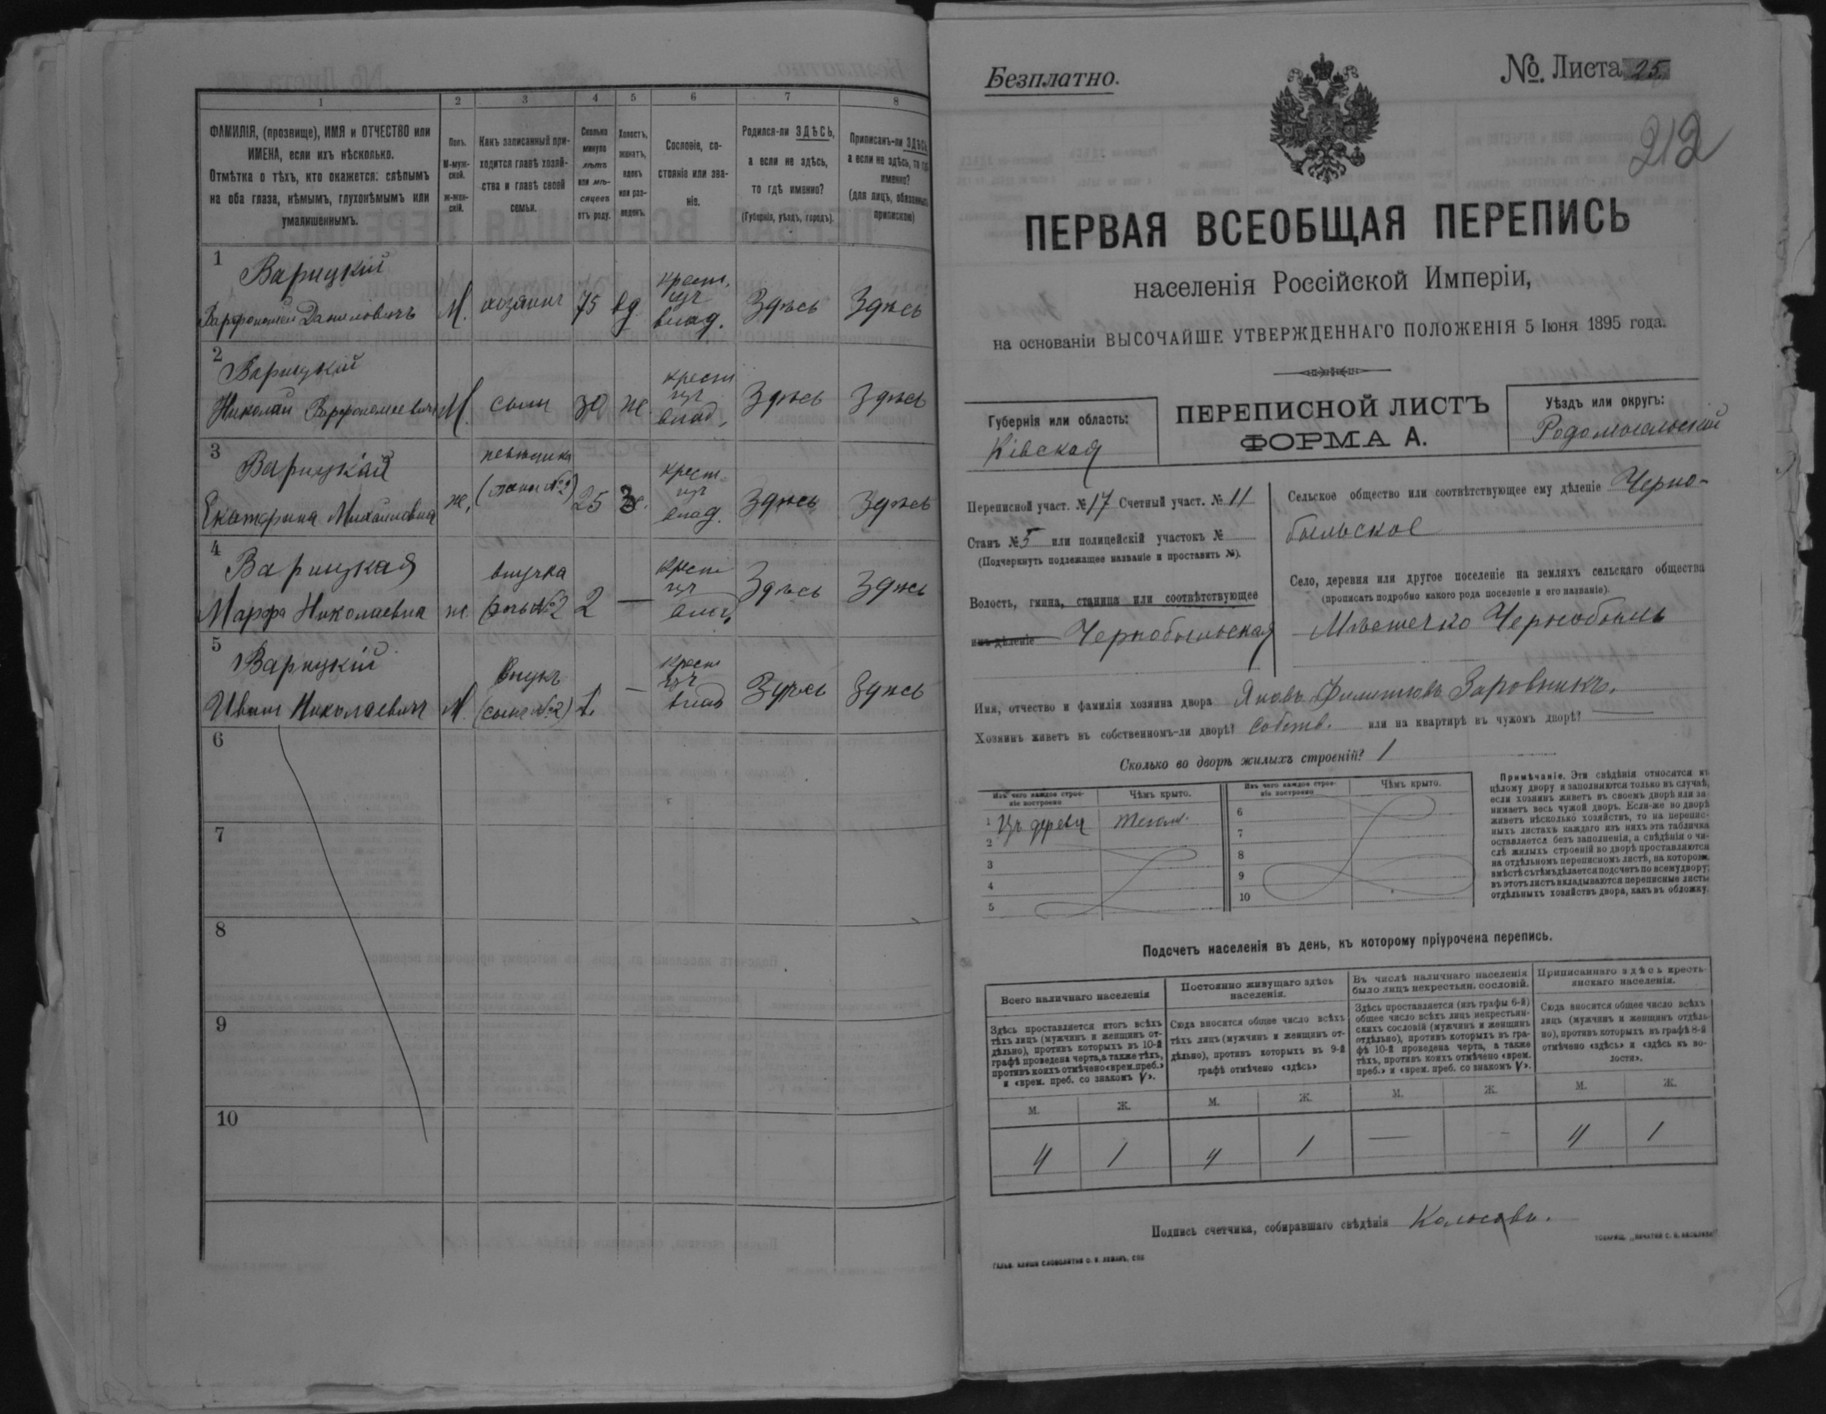 1 2 3 4 5 6 7 8
ФАМИЛІЯ, (прозвище), ИМЯ и ОТЧЕСТВО или
ИМЕНА, если ихъ нѣсколько.
Отмѣтка о тѣхъ, кто окажется: слѣпымъ
на оба глаза, нѣмымъ, глухонѣмымъ или
умалишеннымъ.
Полъ.
М-муж-
ской.
ж-жен-
скій.
Какъ записанный при-
ходится главѣ хозяй-
ства и главѣ своей
семьи.
Сколько
минуло
лѣтъ
или мѣ-
сяцевъ
отъ роду.
Холостъ,
женатъ,
вдовъ
или раз-
веденъ.
Сословіе, со-
стояніе или зва-
ніе.
Родился-ли ЗДѢСЬ,
а если не здѣсь,
то гдѣ именно?
(Губернія, уѣздъ, городъ).
Приписанъ-ли ЗДѢСЬ,
а если не здѣсь, то гдѣ
именно?
(для лицъ, обязанныхъ
припискою)
1
Варицкій
Варфоломей Даниловичъ М. хозяинъ 75 вд. крест. изъ влад. Здѣсь Здѣсь
2
Варицкій
Николай Варфоломеевичъ М. сынъ 30 ж. крест. изъ влад. Здѣсь Здѣсь
3
Варицкая
Екатерина Михайловна ж. невѣстка (жена №2) 25 З. крест. изъ влад. Здѣсь Здѣсь
4
Варицкая
Марфа Николаевна ж. внучка (дочь №2) 2 — крест. изъ влад. Здѣсь Здѣсь
5
Варицкій
Иванъ Николаевич М. внукъ (сынъ №2) 1. — крест. изъ влад. Здѣсь Здѣсь
6
7
8
9
10
Безплатно.
№ Листа 25
212
ПЕРВАЯ ВСЕОБЩАЯ ПЕРЕПИСЬ
населенія Россійской Имперіи,
на основаніи ВЫСОЧАЙШЕ УТВЕРЖДЕННАГО ПОЛОЖЕНІЯ 5 Іюня 1895 года.
Губернія или область:
Кіевская
ПЕРЕПИСНОЙ ЛИСТЪ
ФОРМА А.
Уѣздъ или округъ:
Радомысльскій
Переписной участ. № 17 Счетный участ. № 11
Станъ № 5 или полицейскій участокъ №
(Подчеркнуть подлежащее названіе и проставить №).
Волость, гмина, станица или соотвѣтствующее
имъ дѣленіе Чернобыльская
Сельское общество или соотвѣтствующее ему дѣленіе Черно-
быльское
Село, деревня или другое поселеніе на земляхъ сельскаго общества
(прописать подробно какого рода поселеніе и его названіе).
Мѣстечко Чернобыль
Имя, отчество и фамилія хозяина двора Яковъ Филиповъ Заровныхъ.
Хозяинъ живетъ въ собственномъ-ли дворѣ? Собств. или на квартирѣ въ чужомъ дворѣ? —
Сколько во дворѣ жилыхъ строеній? 1
Изъ чего каждое строе-
ніе построено
Чѣмъ крыто.
Изъ чего каждое строе-
ніе построено
Чѣмъ крыто.
1 Изъ дерева
2
3
4
5
6
7
8
9
10
Примѣчаніе. Эти свѣдѣнія относятся къ
цѣлому двору и заполняются только въ случаѣ,
если хозяинъ живетъ въ своемъ дворѣ или за-
нимаетъ весь чужой дворъ. Если-же во дворѣ
живетъ нѣсколько хозяйствъ, то на перепис-
ныхъ листахъ каждаго изъ нихъ эта табличка
оставляется безъ заполненія, а свѣдѣнія о чи-
слѣ жилыхъ строеній во дворѣ проставляются
на отдѣльномъ переписномъ листѣ, на которомъ
вмѣстѣ съ тѣмъ дѣлается подсчетъ по всему двору;
въ этотъ листъ вкладываются переписные листы
отдѣльныхъ хозяйствъ двора, какъ въ обложку.
Подсчетъ населенія въ день, къ которому пріурочена перепись.
Всего наличнаго населенія
Здѣсь проставляется итогъ всѣхъ
тѣхъ лицъ (мужчинъ и женщинъ от-
дѣльно), противъ которыхъ въ 10-й
графѣ проведена черта, а также тѣхъ,
противъ коихъ отмѣчено «врем. преб.»
и «врем. преб. со знакомъ V».
Постоянно живущаго здѣсь
населенія.
Сюда вносится общее число всѣхъ
тѣхъ лицъ (мужчинъ и женщинъ от-
дѣльно), противъ которыхъ въ 9-й
графѣ отмѣчено «здѣсь»
Въ числѣ наличнаго населенія
было лицъ некрестьян. сословій.
Здѣсь проставляется (изъ графы 6-й)
общее число всѣхъ лицъ некрестьян-
скихъ сословій (мужчинъ и женщинъ
отдѣльно), противъ которыхъ въ гра-
фѣ 10-й проведена черта, а также
тѣхъ, противъ коихъ отмѣчено «врем.
преб.» и «врем. преб. со знакомъ V».
Приписаннаго здѣсь кресть-
янскаго населенія.
Сюда вносится общее число всѣхъ
лицъ (мужчинъ и женщинъ отдѣль-
но), противъ которыхъ въ графѣ 8-й
отмѣчено «здѣсь» и «здѣсь въ во-
лости».
М. Ж. М. Ж. М. Ж. М. Ж.
4 1 4 1 — — 4 1
Подпись счетчика, собиравшаго свѣдѣнія